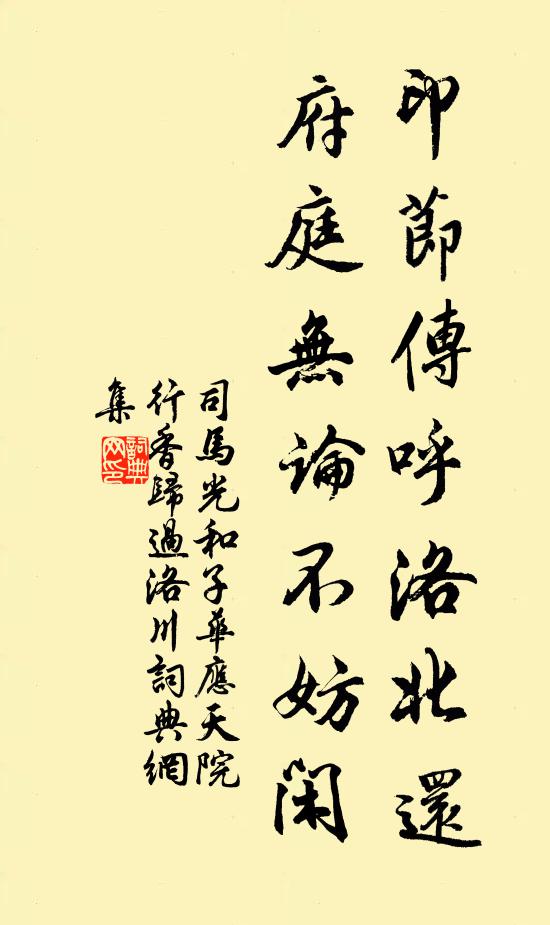 印節傳呼洛北還
府庭無論不妨閑
司馬光和子華應天院
行香歸過洛川詞典網
集
詞典
网印